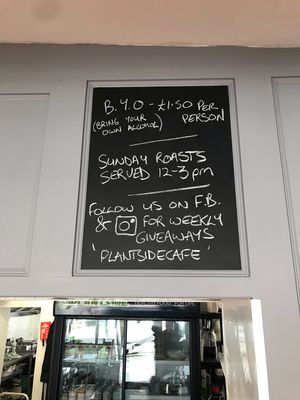 B.Y.O - £1.50 PER
(BRING YOUR PERSON
OWN ALCOHOL)
SUNDAY ROASTS
SERVED 12-3pm
FOLLOW US ON F.B.
& FOR WEEKLY
GIVEAWAYS
'PLANTSIDECAFE'